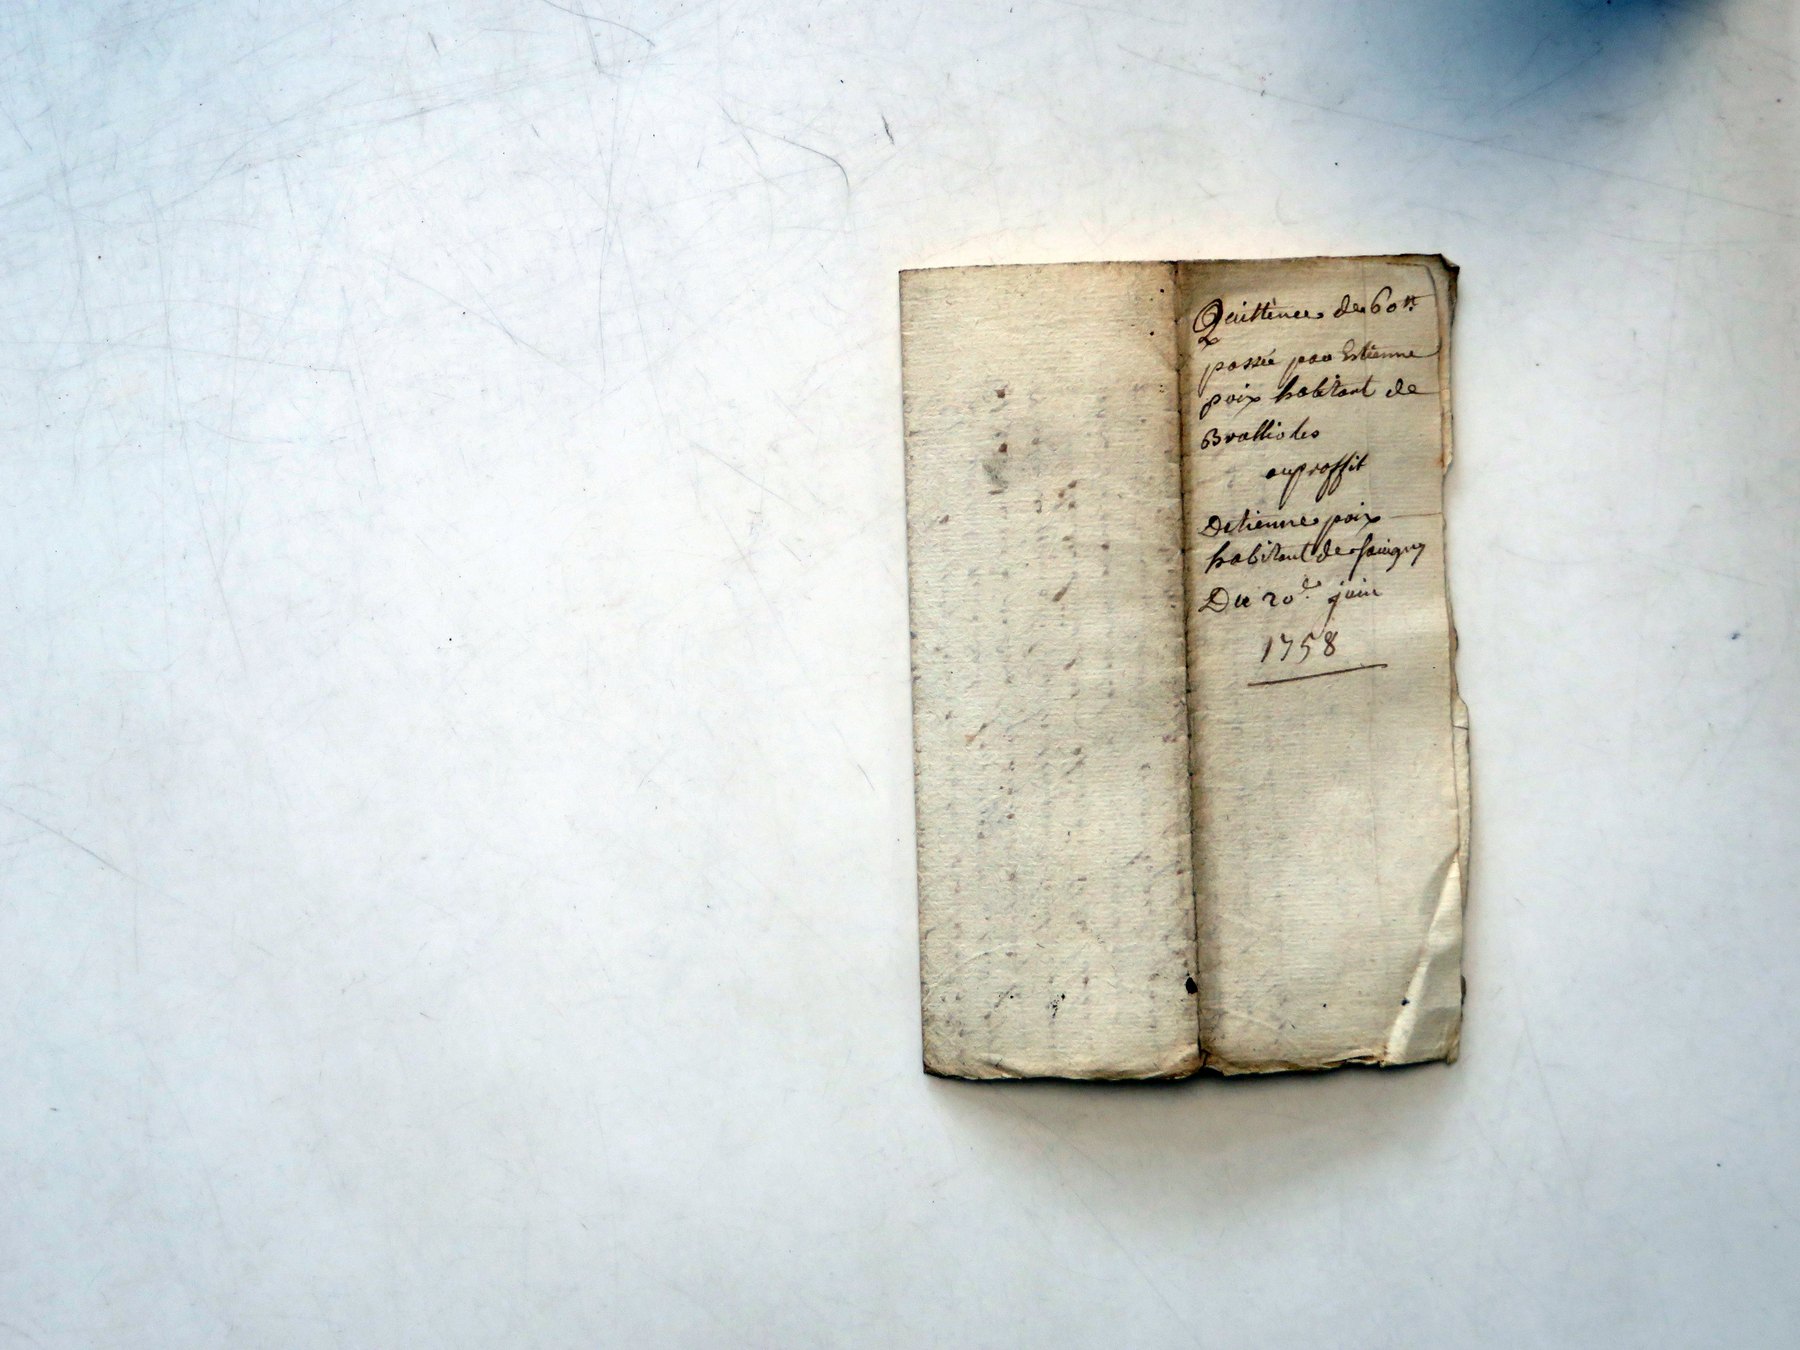 Quittence de 60tt
passée par Estienne
poix habitant de
Brallioles
au proffit
Detienne poix
habitant de Savigny
Du 20e juin
1758